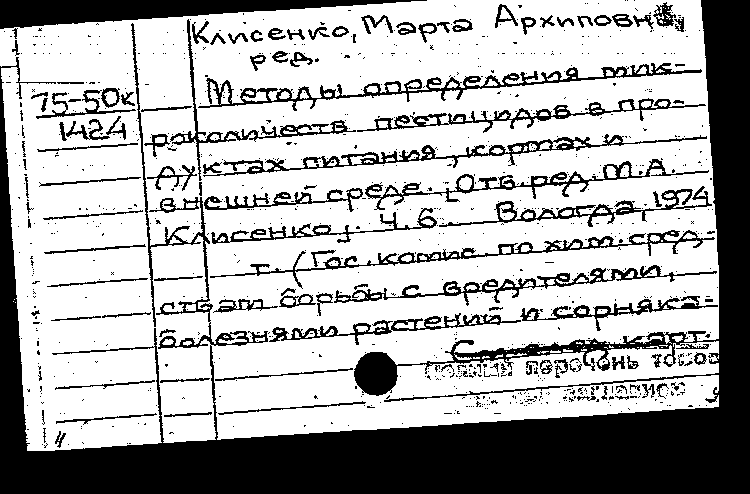 Клисенко, Марта Архиповна,
ред.
75-50к
1424
Методы определения мик-
роколичеств пестицидов в про-
дуктах питания, кормах и
внешней среде. [Отв. ред. М.А.
Клисенко]. Ч. 6 Вологда, 1974
т. (Гос. комис. по хим. сред-
ствам борьбы с вредителями,
болезнями растений и сорняка-
След. карт.
полный перечень томов
заглавием
4